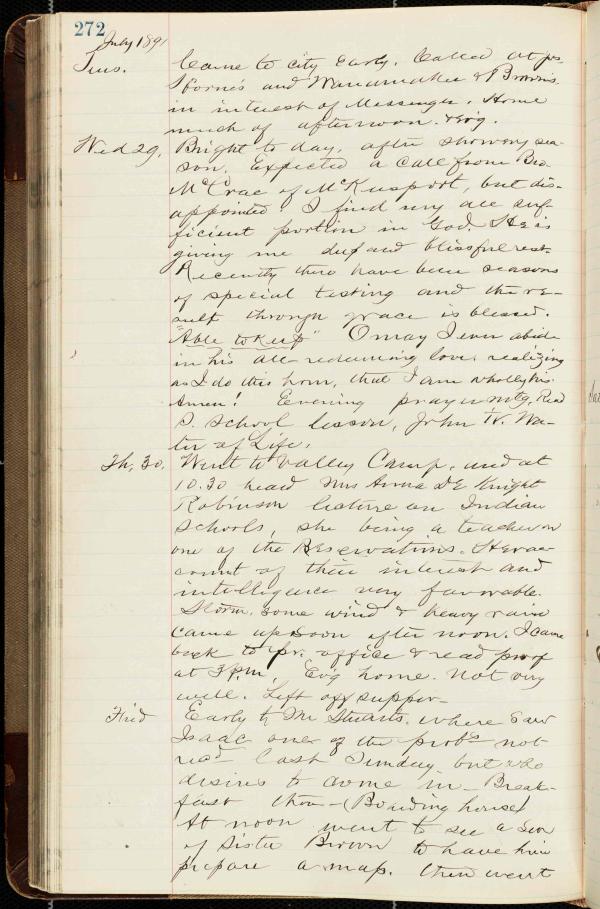 272
July 1891
Tues. Came to city early. Called at
Osborne's and Wanamaker & Browns
in interest of Messenger. Home
much of afternoon. & ev'g.
Wed 29. Bright to day, after showery sea-
son. Expected a call from Bro.
McCrae of McKusport, but dis-
appointed. I find my all suf-
ficient portion in God. He is
giving me deep and blissful rest.
Recently there have been seasons
of special testing and the re-
sult through grace is blessed.
"Able to Keep" O may I ever abide
in his all-redeeming love, realizing
as I do this hour, that I am wholly his.
Amen! Evening prayer mtg. Read
S. School lesson, John IV. Wa-
ter of Life.
Th. 30. Went to Valley Camp, and at
10.30 heard Mrs Anna De Knight
Robinson lecture on Indian
Schools, she being a teacher on
one of the Reservations. Her ac-
count of their interest and
intelligence very favorable.
Storm, some wind & heavy rain
came up soon after noon. I came
back to office & read proof
at 3 pm, Evg home. Not very
well. Left off supper-
Frid Early to Mr Stuarts, where saw
Isaac one of the prob's not
rec'd last Sunday but who
desires to come in - Break-
fast then - (Boarding house)
At noon went to see a son
of Sister Brown to have him
prepare a map. Then went